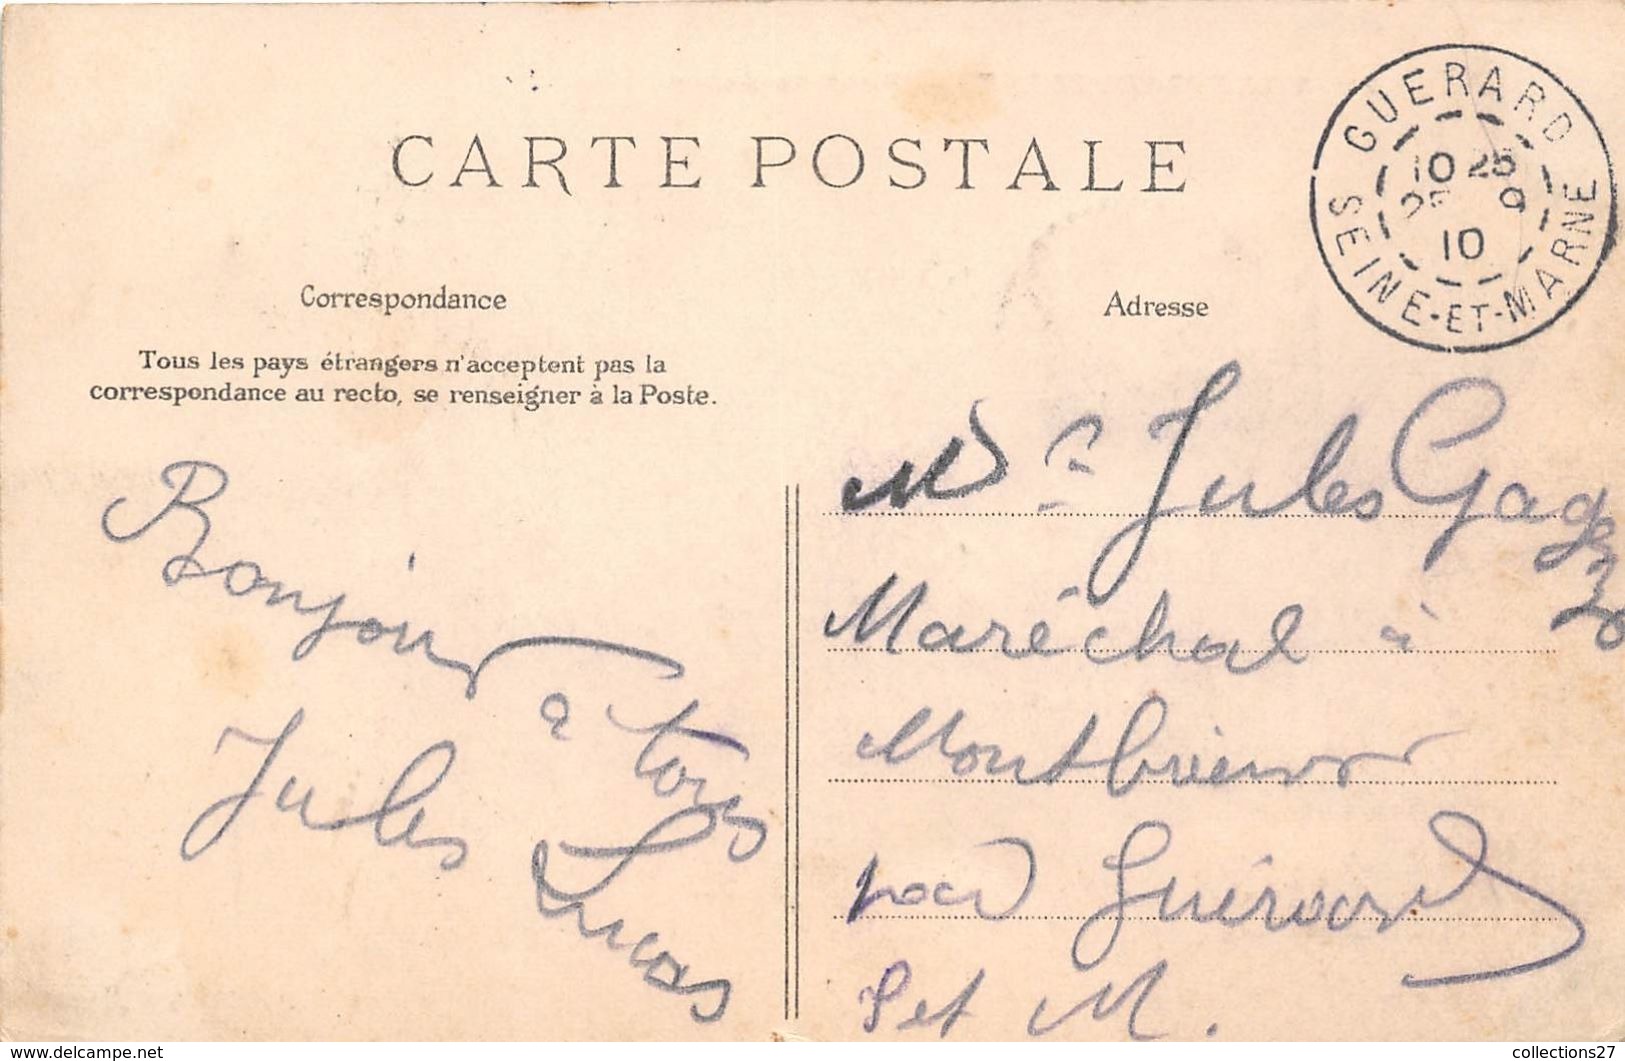 CARTE POSTALE
GUERARD
10 25
25 9
10
SEINE-ET-MARNE
Correspondance
Adresse
Tous les pays étrangers n'acceptent pas la
correspondance au recto, se renseigner à la Poste.
Bonjour
à tous
Jules
Lucas
Mr Jules
Maréchal à
par Guérard
S et M.
collections27